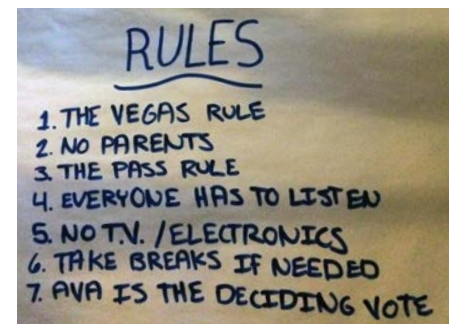 RULES
1. THE VEGAS RULE
2. NO PARENTS
3. THE PASS RULE
4. EVERYONE HAS TO LISTEN
5. NO T.V. /ELECTRONICS
6. TAKE BREAKS IF NEEDED
7. AVA IS THE DECIDING VOTE